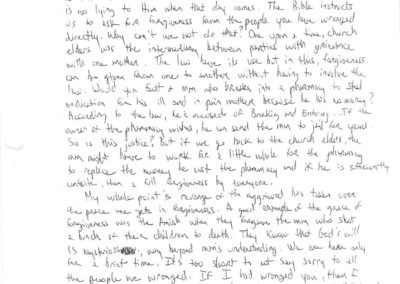 is no lying to Him when that day comes. The Bible instructs
us to ask for forgiveness from the people you have wronged
directly. Why can't we not do that? Once upon a time, church
elders was the intermediary between parties with grievance
with one another. The law have its use but in this, forgiveness
can be given from one to another without having to involve the
law. Would you fault a man who breaks into a pharmacy to steal
medication for his ill and in pain mother because he has no money?
According to the law, he's accused of Breaking and Entering. If the
owner of the pharmacy wishes, he can send the man to jail for years.
So is this justice? But if we go back to the church elders, the
man might have to work for a little while for the pharmacy
to replace the money he cost the pharmacy and if he is sufficiently
contrite, then a full forgiveness by everyone.
My whole point is revenge of the aggrieved has taken over
the peace one gets in forgiveness. A good example of the grace of
forgiveness was the Amish when they forgave the man who shot
a bunch of their children to death. They know that God's will
is mysterious, way beyond man's understanding. We are here only
for a brief time. It's too short to not say sorry to all
the people we wronged. If I had wronged you, then I